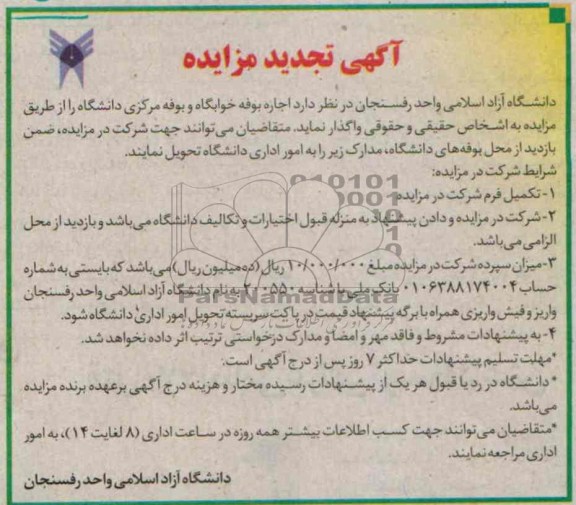 آگهی تجدید مزایده
دانشگاه آزاد اسلامی واحد رفسنجان در نظر دارد اجاره بوفه خوابگاه و بوفه مرکزی دانشگاه را از طریق
مزایده به اشخاص حقیقی و حقوقی واگذار نماید. متقاضیان می‌توانند جهت شرکت در مزایده، ضمن
بازدید از محل بوفه‌های دانشگاه، مدارک زیر را به امور اداری دانشگاه تحویل نمایند.
شرایط شرکت در مزایده:
۱- تکمیل فرم شرکت در مزایده
۲- شرکت در مزایده و دادن پیشنهاد به منزله قبول اختیارات و تکالیف دانشگاه می‌باشد و بازدید از محل
الزامی می‌باشد.
۳- میزان سپرده شرکت در مزایده مبلغ ۱۰/۰۰۰/۰۰۰ ریال (ده میلیون ریال) می‌باشد که بایستی به شماره
حساب ۰۱۰۶۳۸۸۱۷۴۰۰۴ بانک ملی با شناسه ۲۰۰۵۵۰ به نام دانشگاه آزاد اسلامی واحد رفسنجان
واریز و فیش واریزی همراه با برگه پیشنهاد قیمت در پاکت سربسته تحویل امور اداری دانشگاه شود.
۴- به پیشنهادات مشروط و فاقد مهر و امضا و مدارک درخواستی ترتیب اثر داده نخواهد شد.
*مهلت تسلیم پیشنهادات حداکثر ۷ روز پس از درج آگهی است.
* دانشگاه در رد یا قبول هر یک از پیشنهادات رسیده مختار و هزینه درج آگهی برعهده برنده مزایده
می‌باشد.
*متقاضیان می‌توانند جهت کسب اطلاعات بیشتر همه روزه در ساعت اداری (۸ لغایت ۱۴)، به امور
اداری مراجعه نمایند.
دانشگاه آزاد اسلامی واحد رفسنجان
ParsNamadData